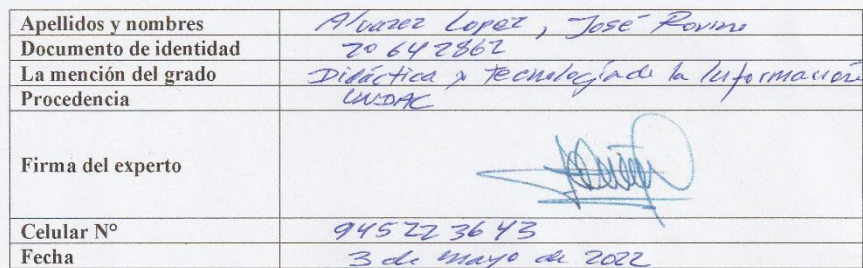 Apellidos y nombres Alvarez Lopez, José Rovino
Documento de identidad 20642862
La mención del grado Didáctica y Tecnología de la Información
Procedencia UNDAC
Firma del experto
Celular N° 945223643
Fecha 3 de mayo de 2022